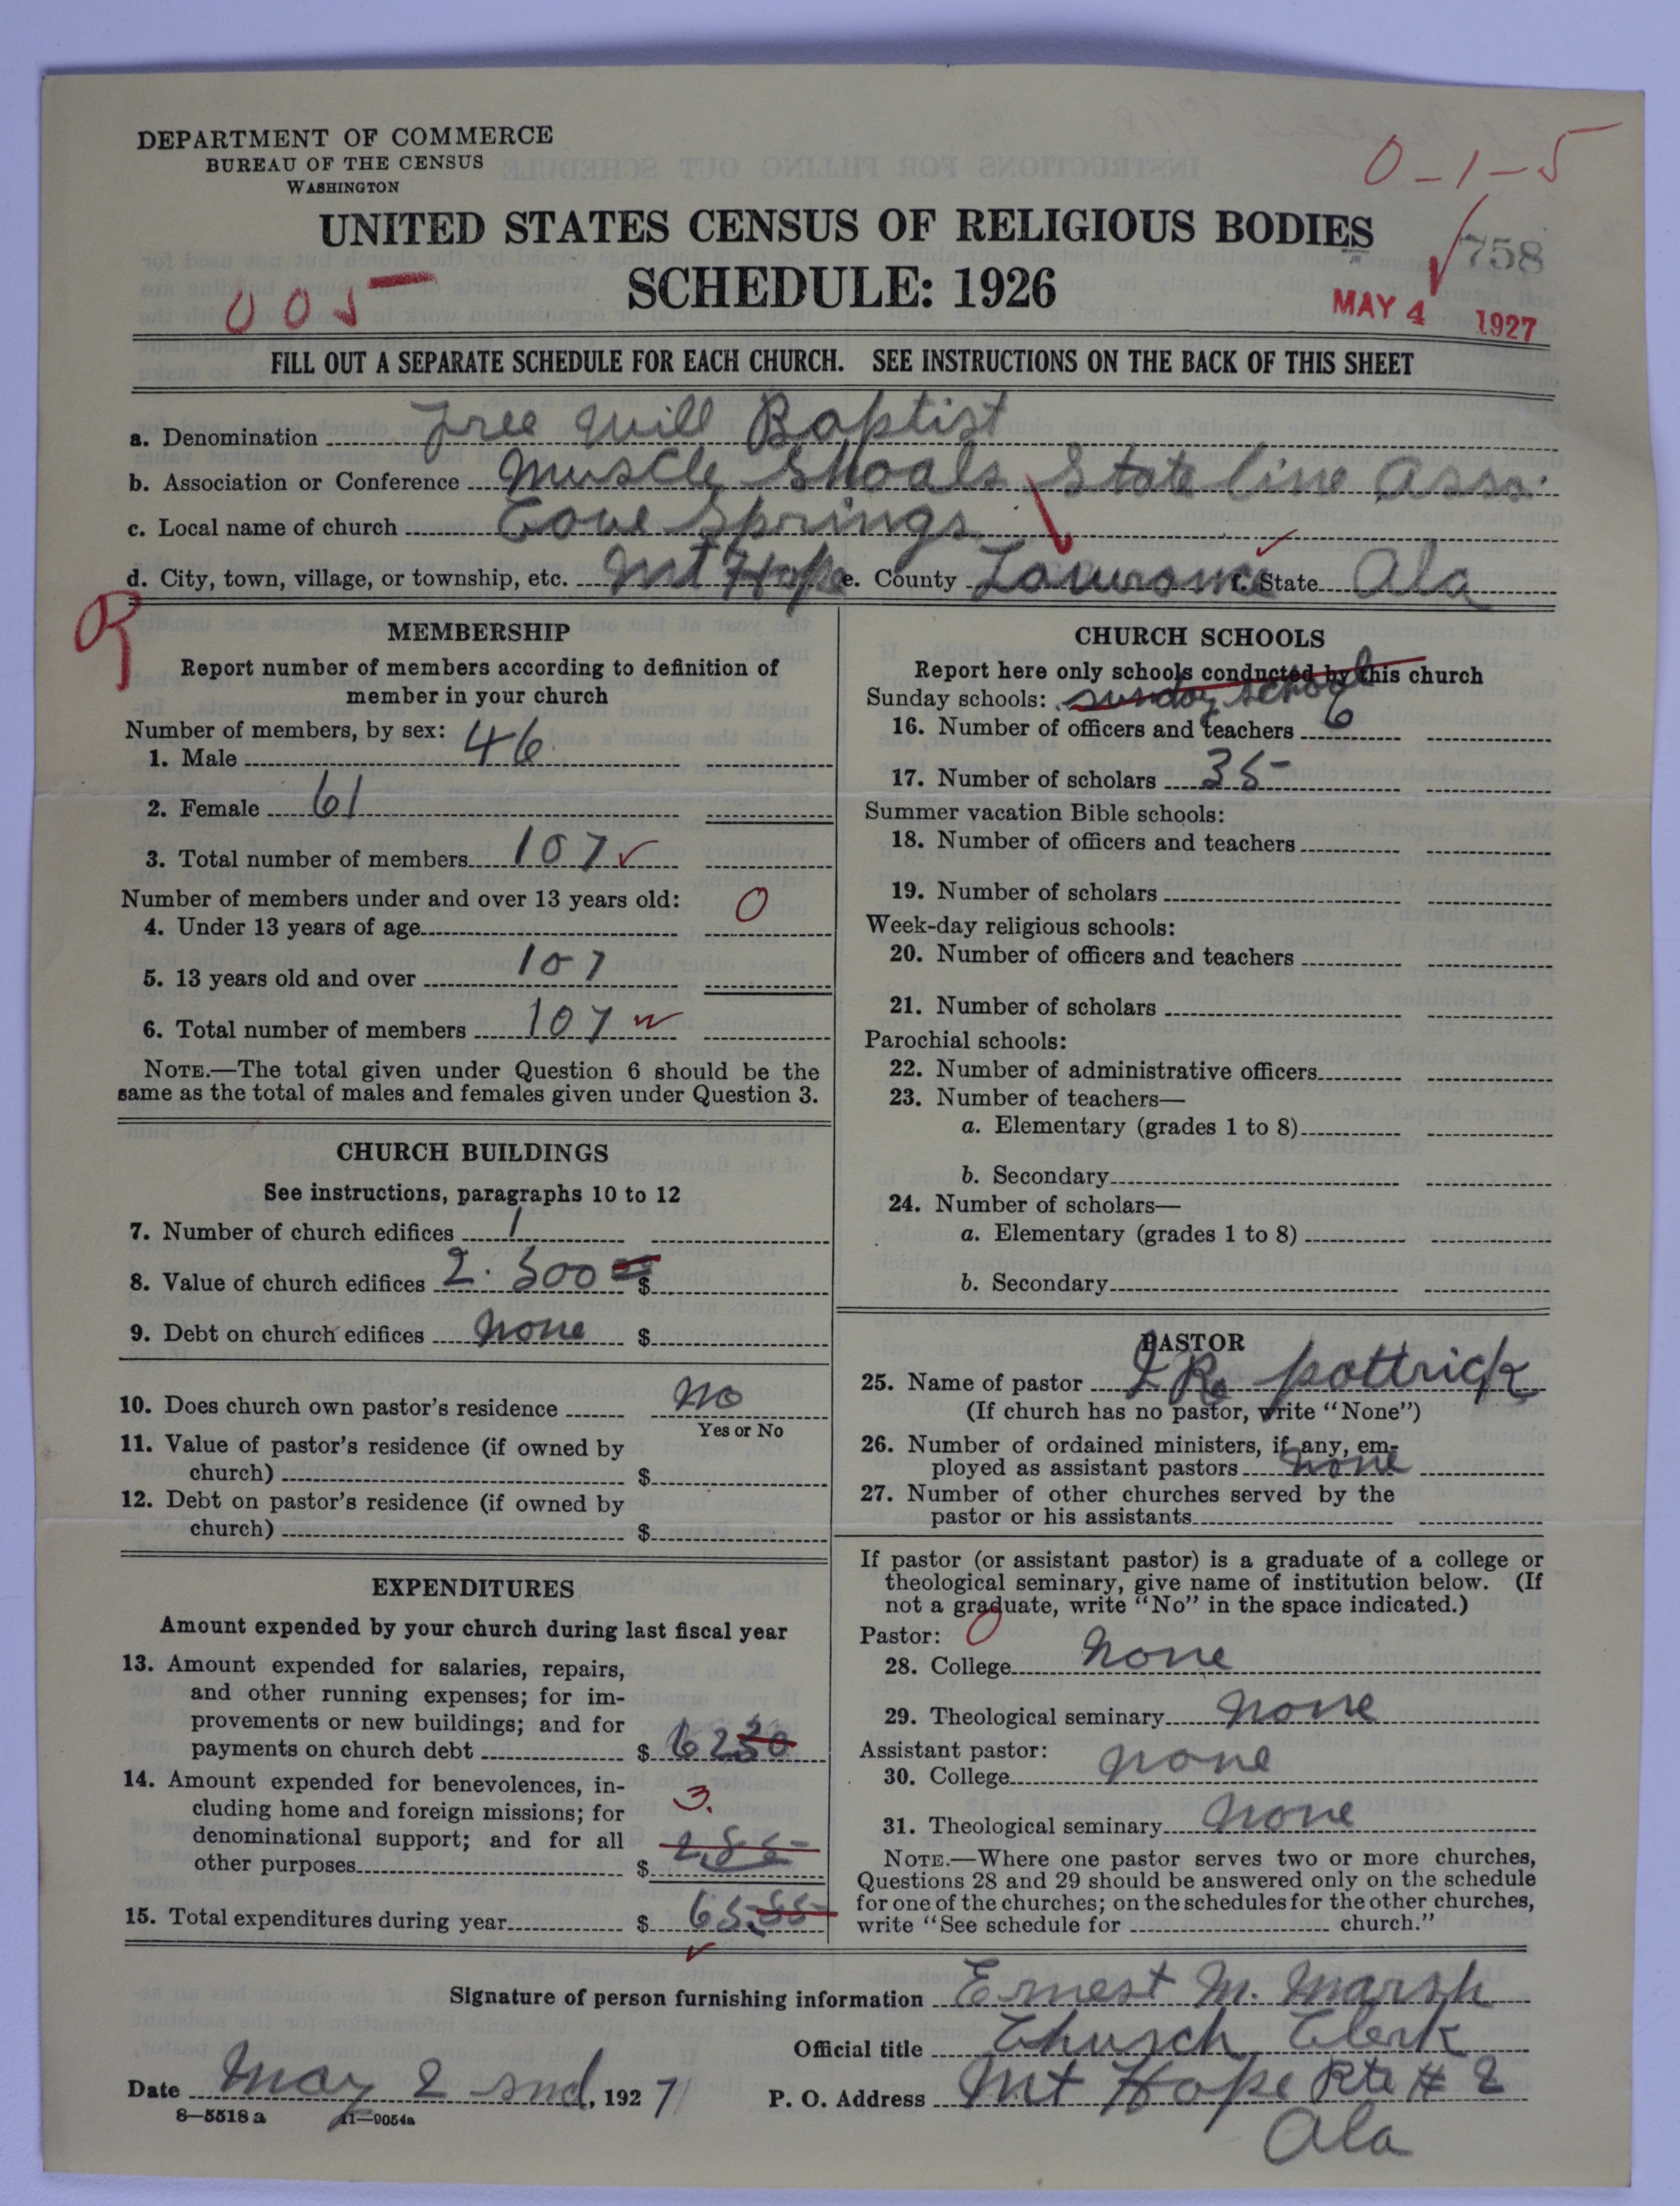 DEPARTMENT OF COMMERCE
BUREAU OF THE CENSUS
WASHINGTON
0-1-5
UNITED STATES CENSUS OF RELIGIOUS BODIES
SCHEDULE: 1926
758
005
MAY 4 1927
FILL OUT A SEPARATE SCHEDULE FOR EACH CHURCH. SEE INSTRUCTIONS ON THE BACK OF THIS SHEET
a. Denomination Free Will Baptist
b. Association or Conference Muscle Shoals State line Asso.
c. Local name of church Cove Springs
d. City, town, village, or township, etc. Mt Hope e. County Lawrance f. State Ala
MEMBERSHIP
Report number of members according to definition of
member in your church
Number of members, by sex:
1. Male 46
2. Female 61
3. Total number of members 107
Number of members under and over 13 years old:
4. Under 13 years of age 0
5. 13 years old and over 107
6. Total number of members 107
NOTE.—The total given under Question 6 should be the
same as the total of males and females given under Question 3.
CHURCH BUILDINGS
See instructions, paragraphs 10 to 12
7. Number of church edifices 1
8. Value of church edifices 2.500 00 $
9. Debt on church edifices none $
10. Does church own pastor's residence no
Yes or No
11. Value of pastor's residence (if owned by
church) $
12. Debt on pastor's residence (if owned by
church) $
EXPENDITURES
Amount expended by your church during last fiscal year
13. Amount expended for salaries, repairs,
and other running expenses; for im-
provements or new buildings; and for
payments on church debt $ 62
14. Amount expended for benevolences, in-
cluding home and foreign missions; for 3.
denominational support; and for all 2.85
other purposes $
15. Total expenditures during year $ 65.
CHURCH SCHOOLS
Report here only schools conducted by this church
Sunday schools: sunday school
16. Number of officers and teachers 6
17. Number of scholars 35
Summer vacation Bible schools:
18. Number of officers and teachers
19. Number of scholars
Week-day religious schools:
20. Number of officers and teachers
21. Number of scholars
Parochial schools:
22. Number of administrative officers
23. Number of teachers—
a. Elementary (grades 1 to 8)
b. Secondary
24. Number of scholars—
a. Elementary (grades 1 to 8)
b. Secondary
PASTOR
25. Name of pastor J R. pattrick
(If church has no pastor, write "None")
26. Number of ordained ministers, if any, em-
ployed as assistant pastors none
27. Number of other churches served by the
pastor or his assistants
If pastor (or assistant pastor) is a graduate of a college or
theological seminary, give name of institution below. (If
not a graduate, write "No" in the space indicated.)
Pastor: 0
28. College none
29. Theological seminary none
Assistant pastor:
30. College none
31. Theological seminary none
NOTE.—Where one pastor serves two or more churches,
Questions 28 and 29 should be answered only on the schedule
for one of the churches; on the schedules for the other churches,
write "See schedule for church."
Signature of person furnishing information Ernest M. Marsh
Official title Church Clerk
Date May 2 snd, 1927 P. O. Address Mt Hope Rte # 2
Ala
8—5518a 11—9054a